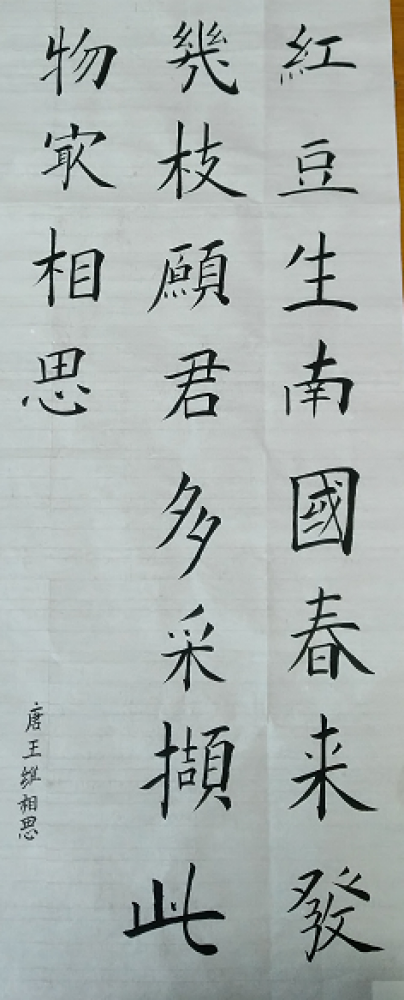 紅豆生南國春来發
幾枝願君多采擷此
物㝡相思
唐王維相思